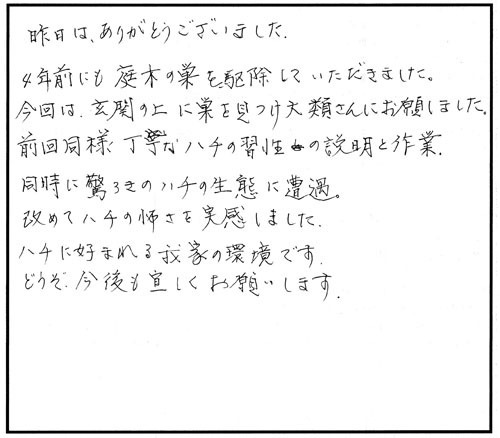 昨日は、ありがとうございました.
4年前にも庭木の巣を駆除していただきました。
今回は、玄関の上に巣を見つけ大類さんにお願しました。
前回同様 丁寧なハチの習性の説明と作業.
同時に驚ろきのハチの生態に遭遇。
改めてハチの怖さを実感しました.
ハチに好まれる我家の環境です.
どうぞ.今後も宜しくお願いします.